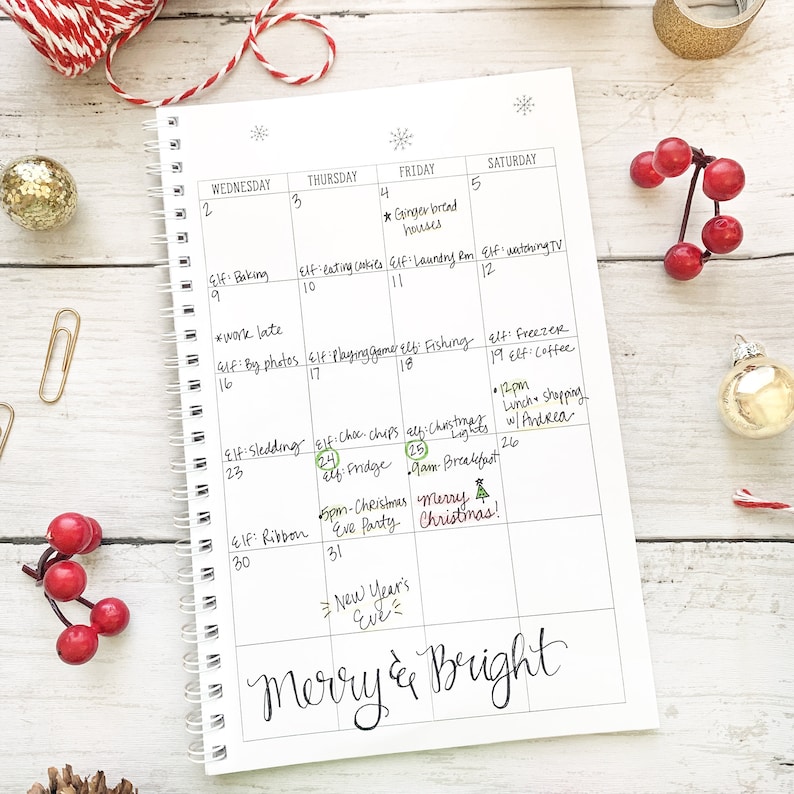 WEDNESDAY THURSDAY FRIDAY SATURDAY
2 3 4 5
* Gingerbread
houses
Elf: Baking Elf: eating cookies Elf: Laundry Rm Elf: watching TV
9 10 11 12
*work late
Elf: By photos Elf: Playing Game Elf: Fishing Elf: Freezer
16 17 18 19 Elf: Coffee
• 12pm
Lunch + Shopping
w/ Andrea
Elf: Sledding Elf: Choc. Chips Elf: Christmas
Lights
23 24 25 26
Elf: Fridge • 9am - Breakfast
• 5pm - Christmas
Eve Party
Merry
Christmas!
Elf: Ribbon
30 31
New Year's
Eve
Merry & Bright